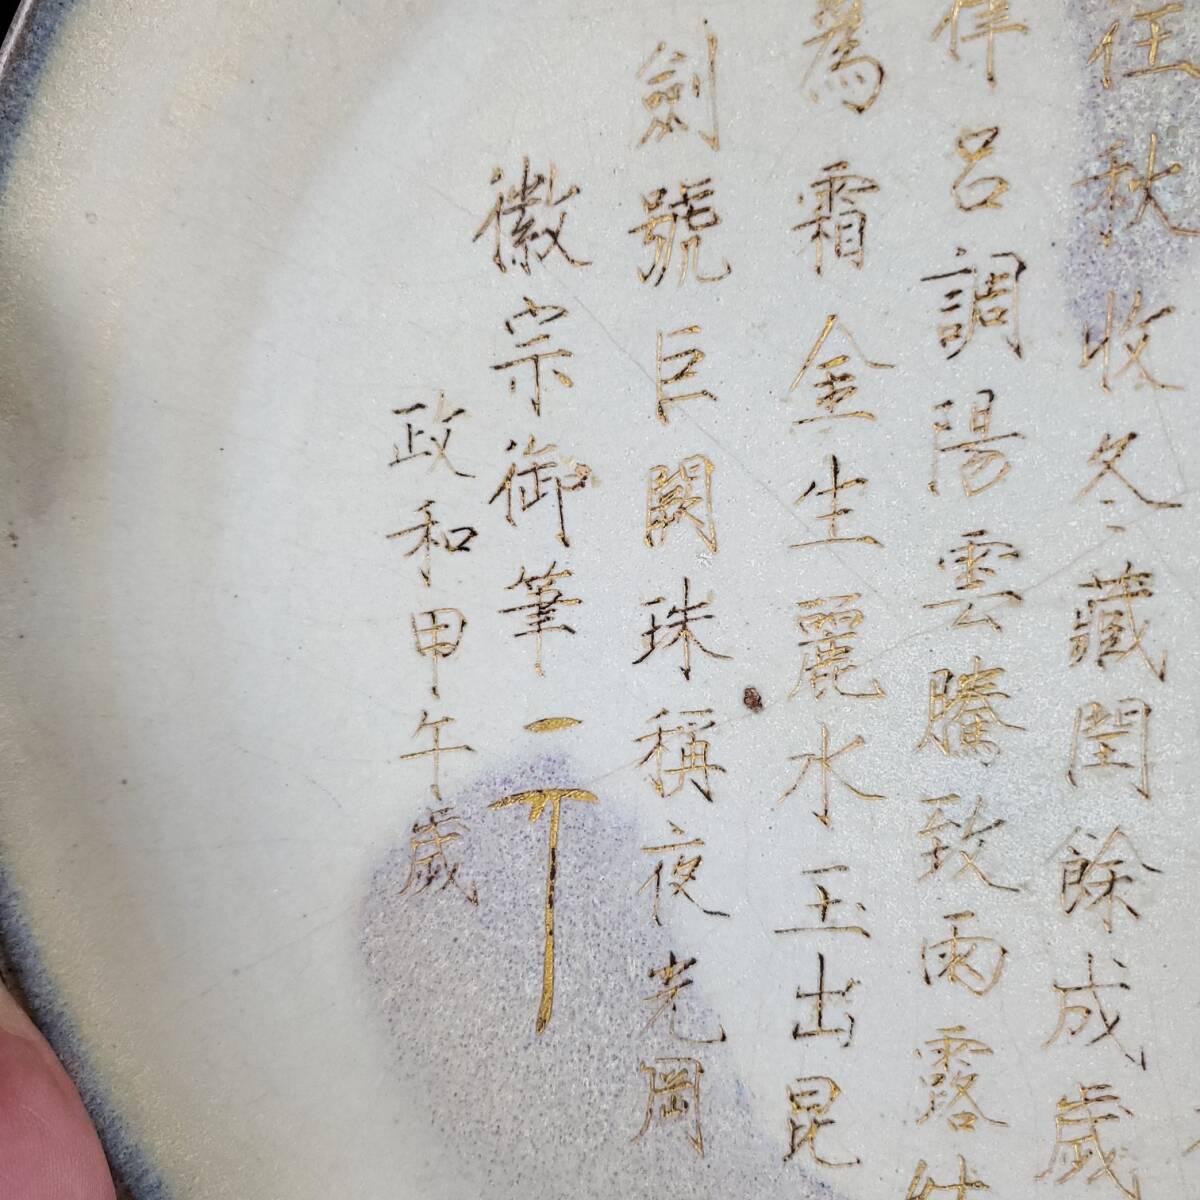 往秋收冬藏閏餘成歲
律呂調陽雲騰致雨露結
為霜金生麗水玉出昆
劍號巨闕珠稱夜光岡
徽宗御筆
政和甲午歲